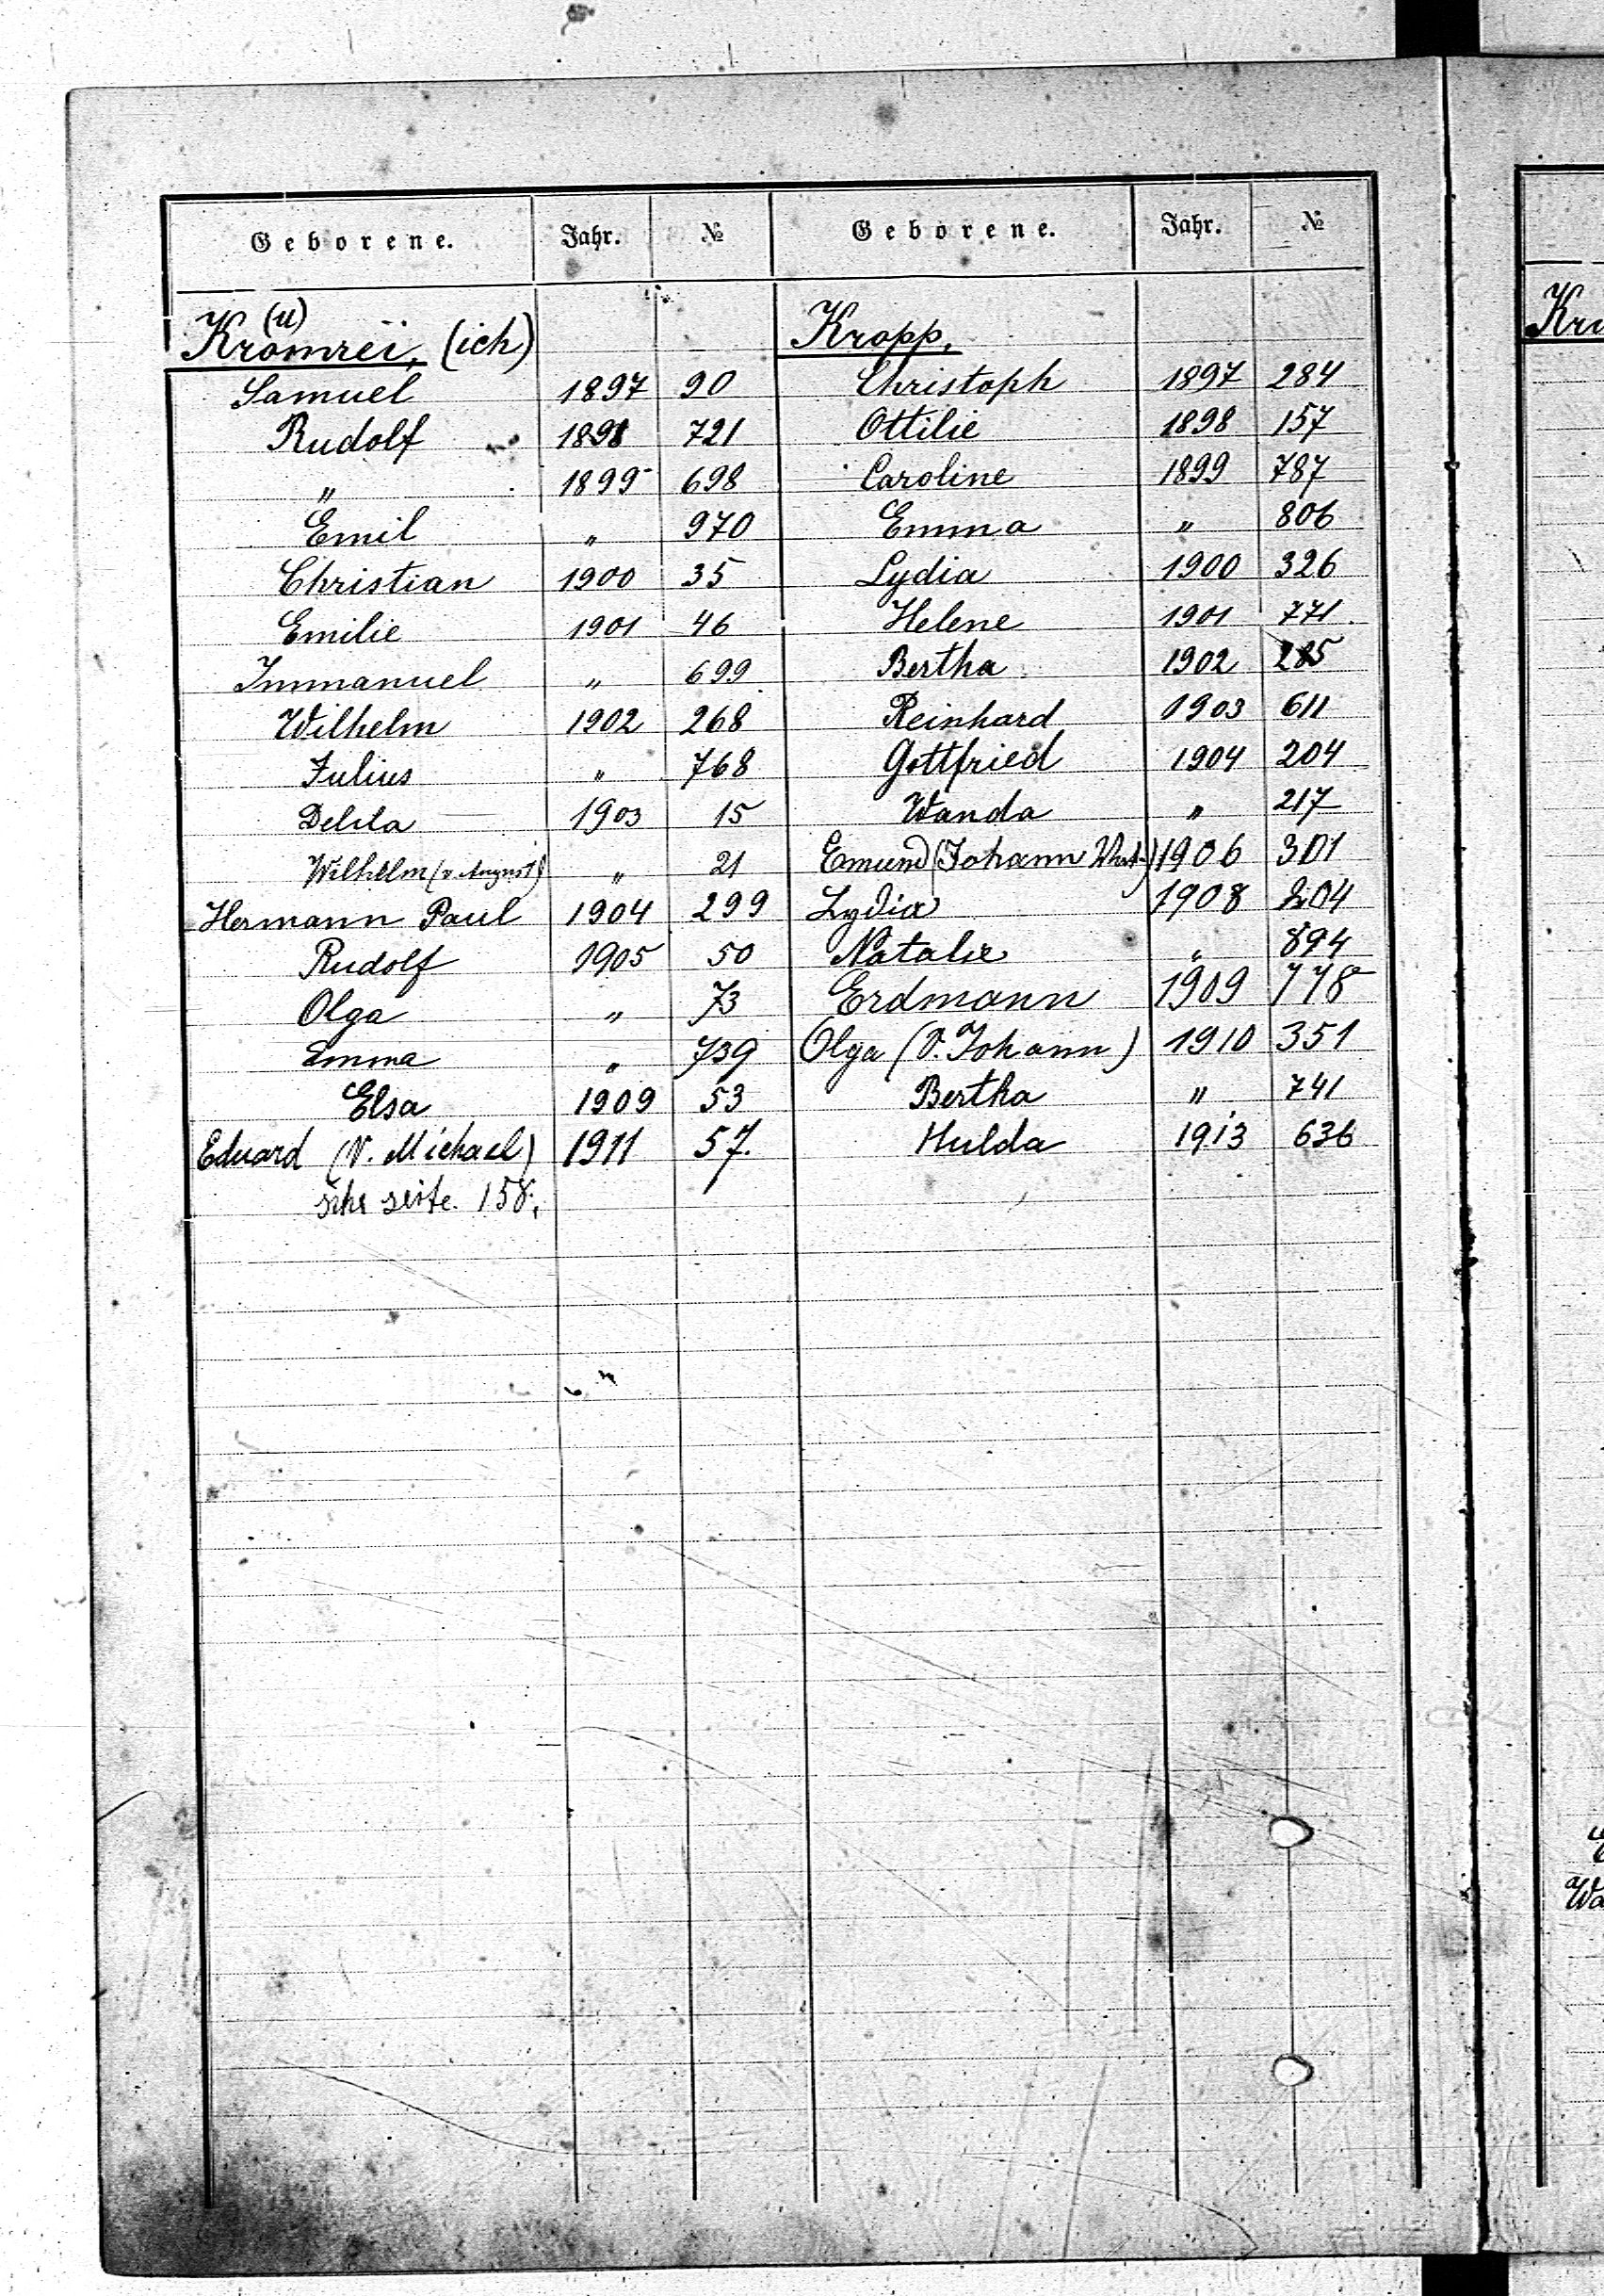 Geborene. Jahr. №
(u)
Kromrei, (ich)
Samuel 1897 90
Rudolf 1898 721
" 1899 698
Emil " 970
Christian 1900 35
Emilie 1901 46
Immanuel " 699
Wilhelm 1902 268
Julius " 768
Delila 1903 15
Wilhelm (v. August) " 21
Hermann Paul 1904 299
Rudolf 1905 50
Olga " 73
Emma " 739
Elsa 1909 53
Eduard (V. Michael) 1911 57.
sihe seite. 158.
Geborene. Jahr. №
Kropp,
Christoph 1897 284
Ottilie 1898 157
Caroline 1899 787
Emma " 806
Lydia 1900 326
Helene 1901 771.
Bertha 1902 285
Reinhard 1903 611
Gottfried 1904 204
Wanda " 217
Emund (Johann 1906 301
Lydia 1908 204
Natalie " 894
Erdmann 1909 778
Olga (V. Johann) 1910 351
Bertha " 741
Hulda 1913 636